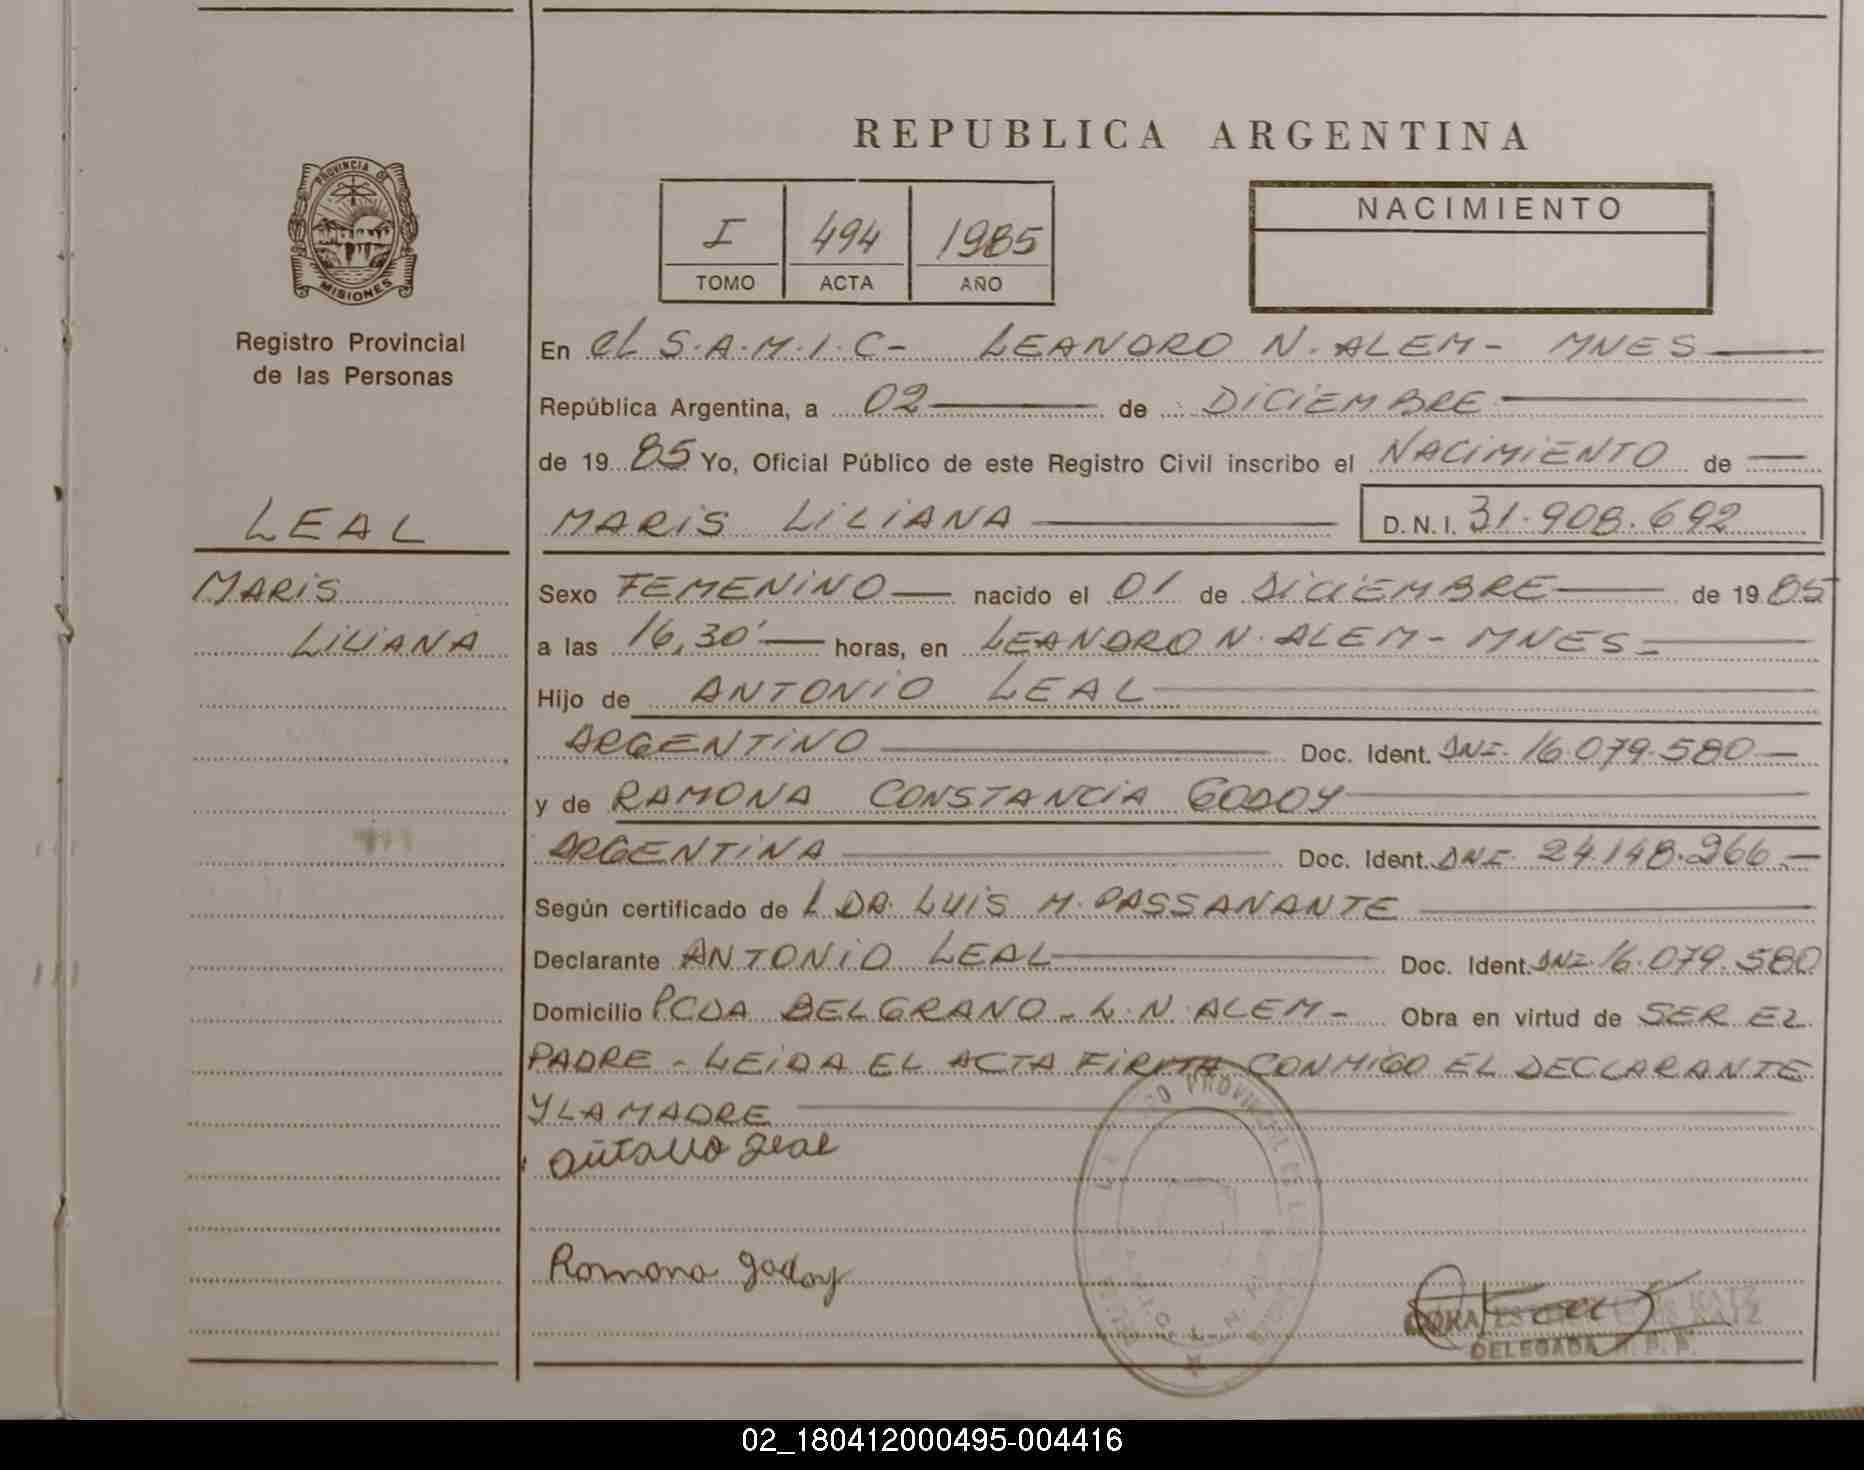 REPUBLICA ARGENTINA
PROVINCIA DE
MISIONES
I 494 1985
TOMO ACTA AÑO
NACIMIENTO
Registro Provincial
de las Personas
En el S.A.M.I.C- LEANDRO N. ALEM- MNES
República Argentina, a 02 de DICIEMBRE
de 19 85 Yo, Oficial Público de este Registro Civil inscribo el NACIMIENTO de
LEAL
MARIS LILIANA D.N.I. 31.908.692
MARIS
LILIANA
Sexo FEMENINO nacido el 01 de DICIEMBRE de 19 85
a las 16,30' horas, en LEANDRO N. ALEM- MNES
Hijo de ANTONIO LEAL
ARGENTINO Doc. Ident. DNI. 16.079.580
y de RAMONA CONSTANCIA GODOY
ARGENTINA Doc. Ident. DNI. 24.148.266
Según certificado de L DR. LUIS M. PASSANANTE
Declarante ANTONIO LEAL Doc. Ident. DNI. 16.079.580
Domicilio PCDA BELGRANO - L.N. ALEM- Obra en virtud de SER EL
PADRE - LEIDA EL ACTA FIRMA CONMIGO EL DECLARANTE
Y LA MADRE
Leal
Ramona Godoy
DELEGADA R.P.P.
02_180412000495-004416